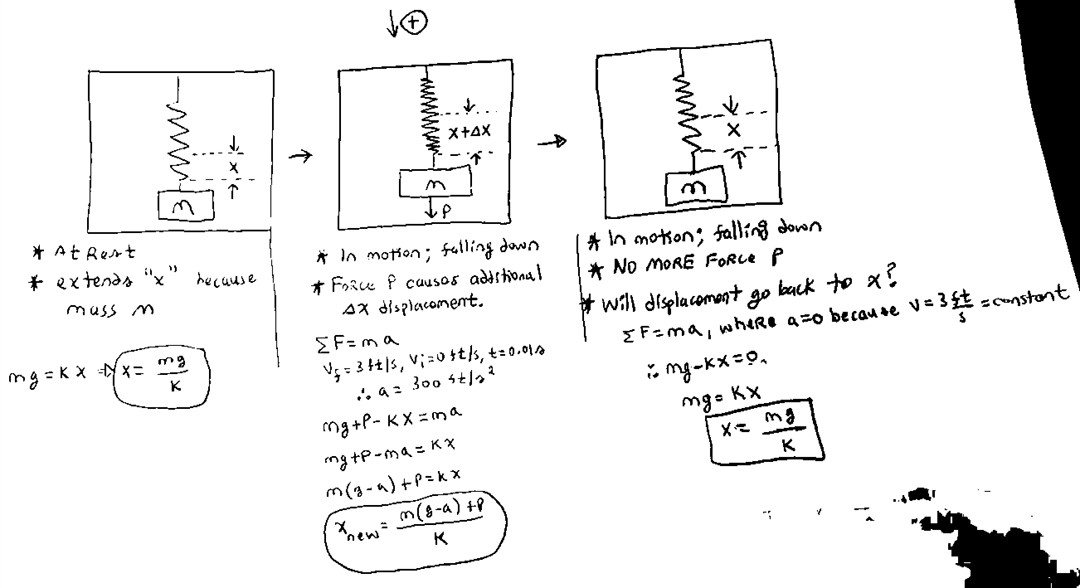 ↓ (+)
x
m
→
x+Δx
m
P
→
x
m
* At Rest
* extends "x" because
mass m
mg = Kx ⇒ x = mg/K
* In motion; falling down
* Force P causes additional
Δx displacement.
ΣF = ma
Vf = 3 ft/s, Vi = 0 ft/s, t = 0.01s
∴ a = 300 ft/s²
mg+P-Kx = ma
mg+P-ma = Kx
m(g-a)+P = Kx
xnew = m(g-a)+P/K
* In motion; falling down
* NO MORE FORCE P
* Will displacement go back to x?
ΣF = ma, where a=0 because v = 3 ft/s = constant
∴ mg-Kx = 0.
mg = Kx
x = mg/K